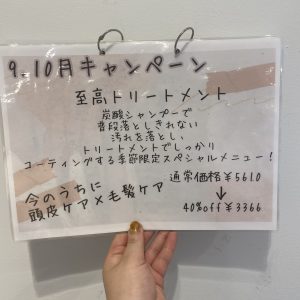 9.10月キャンペーン
至高トリートメント
炭酸シャンプーで
普段落としきれない
汚れを落とし、
トリートメントでしっかり
コーティングする季節限定スペシャルメニュー!
通常価格¥5610
↓
40%off¥3366
今のうちに
頭皮ケア×毛髪ケア